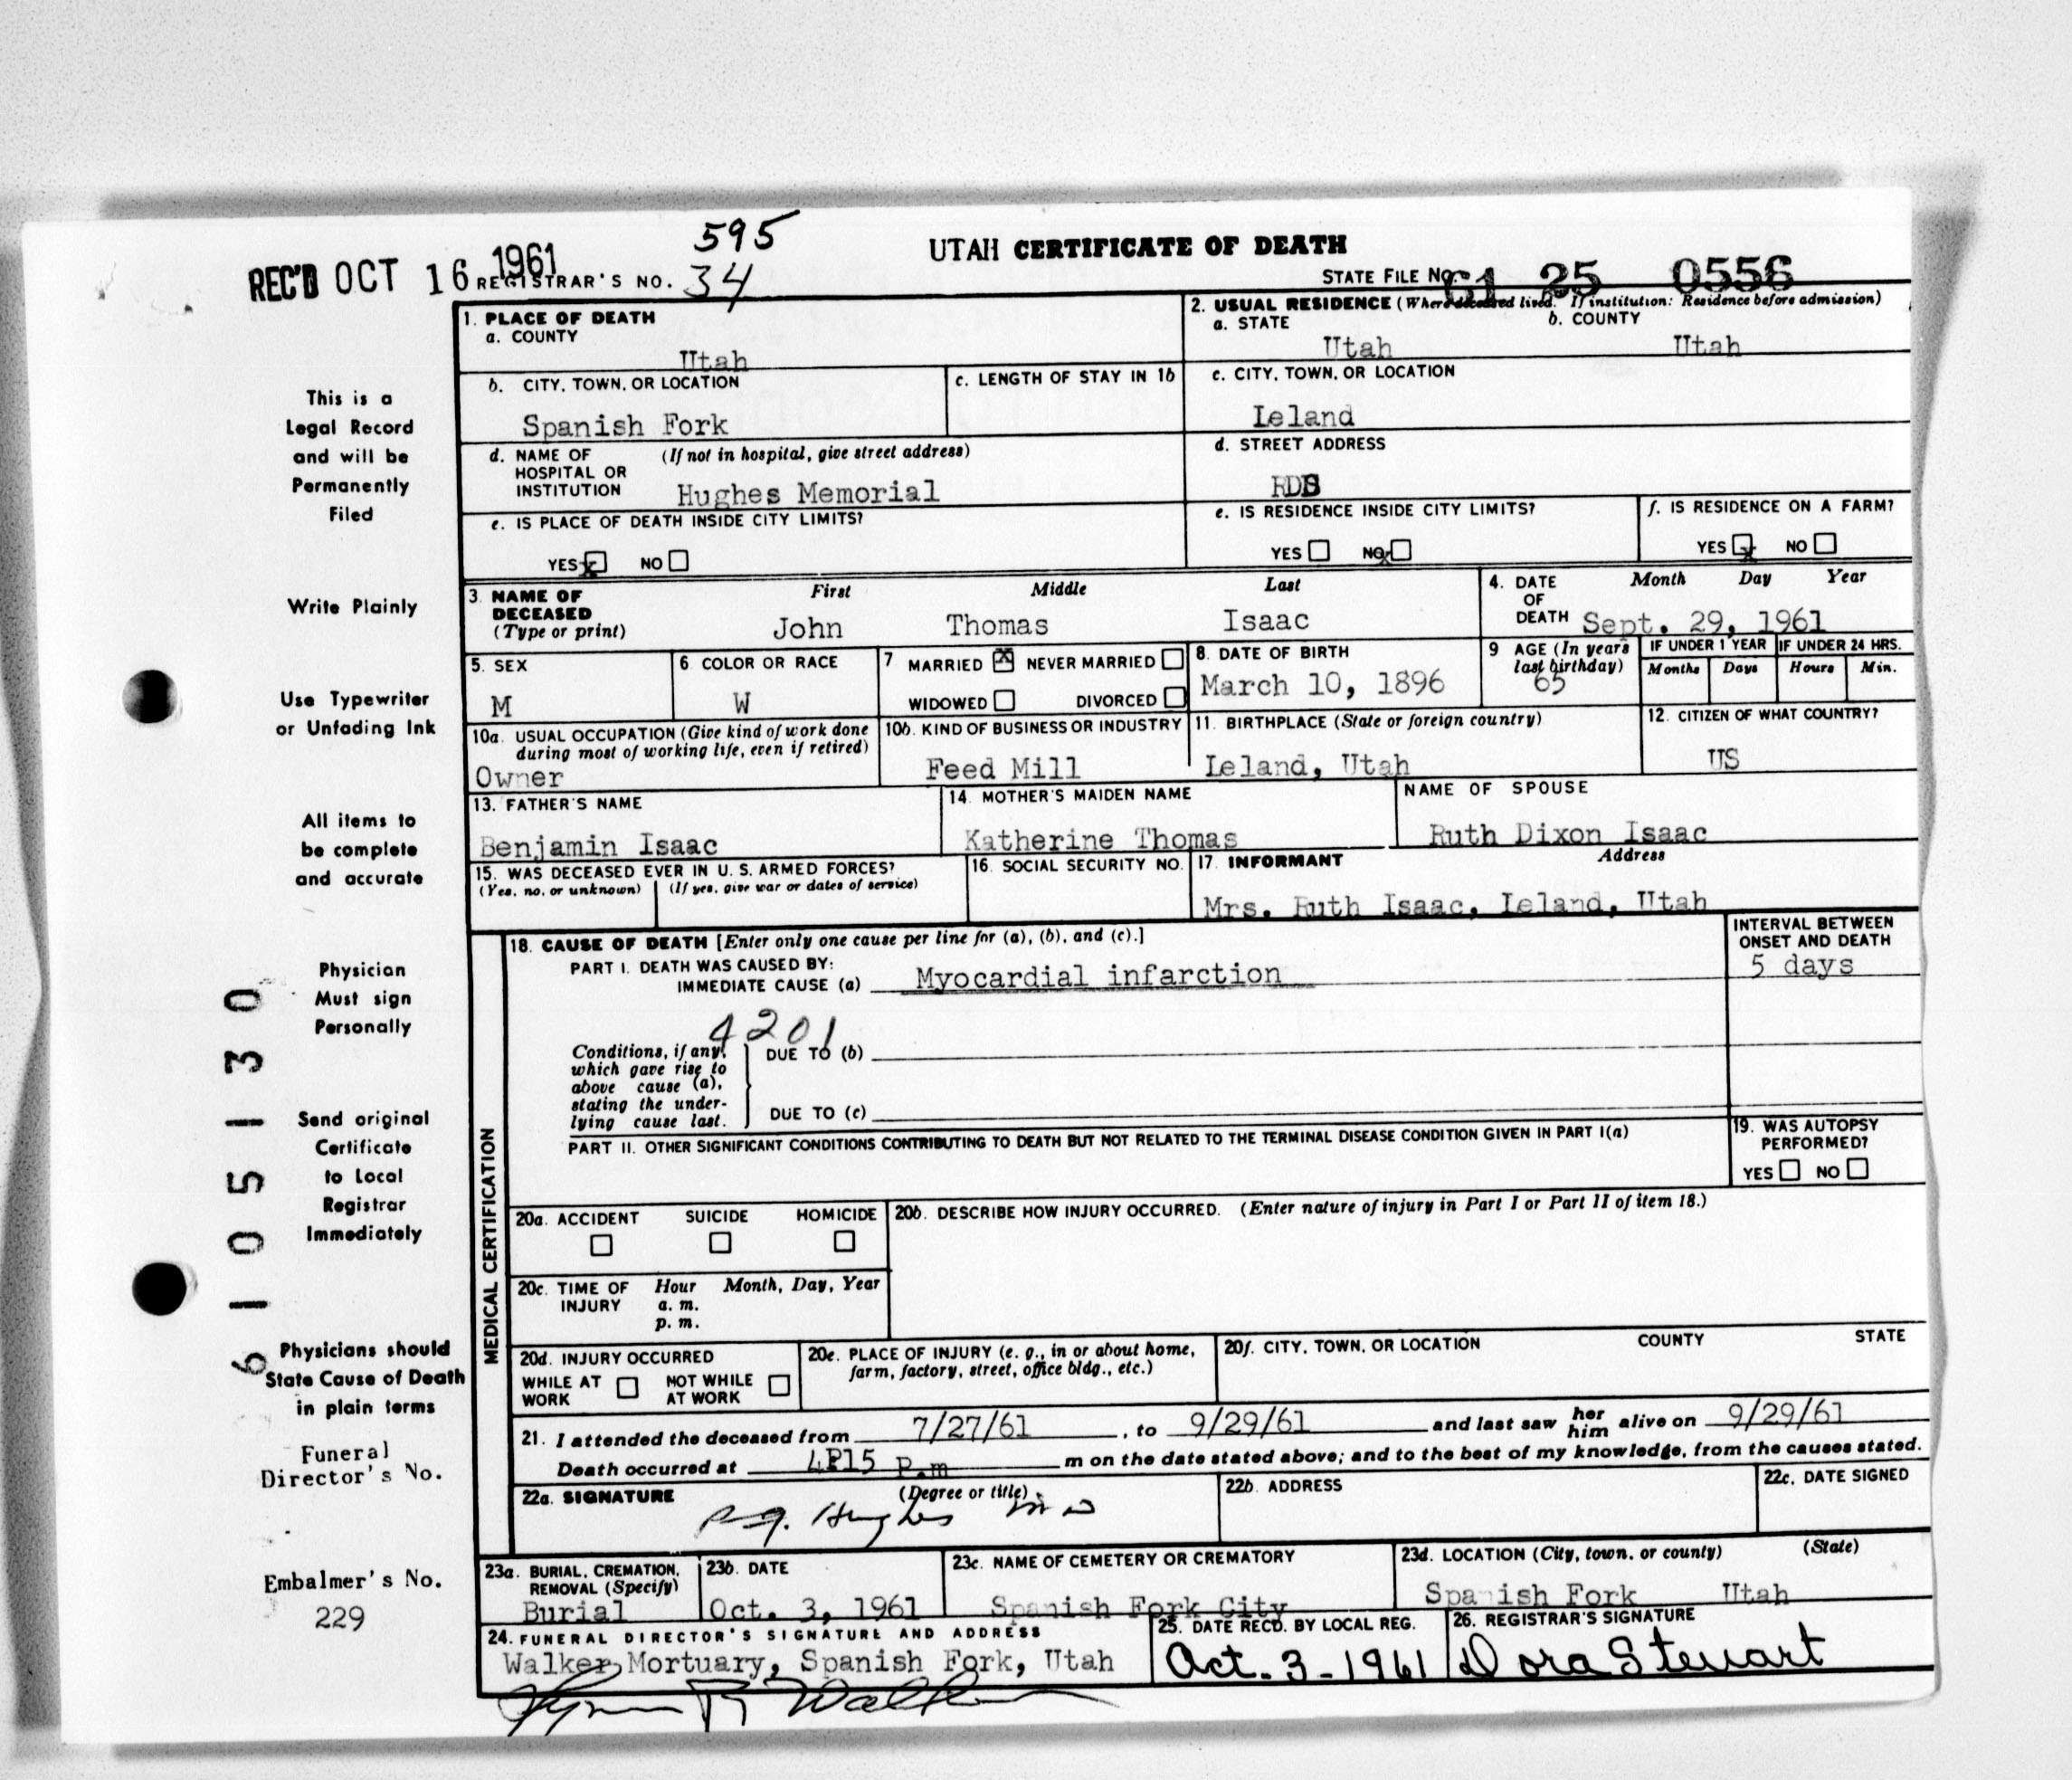 595
UTAH CERTIFICATE OF DEATH
REC'D OCT 16 1961
REGISTRAR'S NO. 34
STATE FILE No. 61 25 0556
1. PLACE OF DEATH
a. COUNTY
Utah
2. USUAL RESIDENCE (Where deceased lived. If institution: Residence before admission)
a. STATE b. COUNTY
Utah Utah
b. CITY, TOWN, OR LOCATION
Spanish Fork
c. LENGTH OF STAY IN 1b
c. CITY, TOWN, OR LOCATION
Leland
d. NAME OF HOSPITAL OR INSTITUTION (If not in hospital, give street address)
Hughes Memorial
d. STREET ADDRESS
e. IS PLACE OF DEATH INSIDE CITY LIMITS?
YES x NO
e. IS RESIDENCE INSIDE CITY LIMITS?
YES NO x
f. IS RESIDENCE ON A FARM?
YES x NO
3. NAME OF DECEASED (Type or print)
First Middle Last
John Thomas Isaac
4. DATE OF DEATH Month Day Year
Sept. 29, 1961
5. SEX
M
6 COLOR OR RACE
W
7 MARRIED X NEVER MARRIED
WIDOWED DIVORCED
8. DATE OF BIRTH
March 10, 1896
9 AGE (In years last birthday)
65
IF UNDER 1 YEAR IF UNDER 24 HRS.
Months Days Hours Min.
10a. USUAL OCCUPATION (Give kind of work done during most of working life, even if retired)
Owner
10b. KIND OF BUSINESS OR INDUSTRY
Feed Mill
11. BIRTHPLACE (State or foreign country)
Leland, Utah
12. CITIZEN OF WHAT COUNTRY?
US
13. FATHER'S NAME
Benjamin Isaac
14. MOTHER'S MAIDEN NAME
Katherine Thomas
NAME OF SPOUSE
Ruth Dixon Isaac
15. WAS DECEASED EVER IN U. S. ARMED FORCES?
(Yes, no, or unknown) (If yes, give war or dates of service)
16. SOCIAL SECURITY NO.
17. INFORMANT Address
Mrs. Ruth Isaac, Leland, Utah
MEDICAL CERTIFICATION
18. CAUSE OF DEATH [Enter only one cause per line for (a), (b), and (c).]
PART I. DEATH WAS CAUSED BY:
IMMEDIATE CAUSE (a) Myocardial infarction
INTERVAL BETWEEN ONSET AND DEATH
5 days
4201
Conditions, if any, which gave rise to above cause (a), stating the underlying cause last.
DUE TO (b)
DUE TO (c)
PART II. OTHER SIGNIFICANT CONDITIONS CONTRIBUTING TO DEATH BUT NOT RELATED TO THE TERMINAL DISEASE CONDITION GIVEN IN PART I(a)
19. WAS AUTOPSY PERFORMED?
YES NO
20a. ACCIDENT SUICIDE HOMICIDE
20b. DESCRIBE HOW INJURY OCCURRED. (Enter nature of injury in Part I or Part II of item 18.)
20c. TIME OF INJURY Hour Month, Day, Year
a. m.
p. m.
20d. INJURY OCCURRED
WHILE AT WORK NOT WHILE AT WORK
20e. PLACE OF INJURY (e. g., in or about home, farm, factory, street, office bldg., etc.)
20f. CITY, TOWN, OR LOCATION COUNTY STATE
21. I attended the deceased from 7/27/61, to 9/29/61 and last saw her him alive on 9/29/61
Death occurred at 4:15 P.m m on the date stated above; and to the best of my knowledge, from the causes stated.
22a. SIGNATURE (Degree or title)
Hughes M D
22b. ADDRESS
22c. DATE SIGNED
23a. BURIAL, CREMATION, REMOVAL (Specify)
Burial
23b. DATE
Oct. 3, 1961
23c. NAME OF CEMETERY OR CREMATORY
Spanish Fork City
23d. LOCATION (City, town, or county) (State)
Spanish Fork Utah
24. FUNERAL DIRECTOR'S SIGNATURE AND ADDRESS
Walker Mortuary, Spanish Fork, Utah
25. DATE RECD. BY LOCAL REG.
Oct. 3-1961
26. REGISTRAR'S SIGNATURE
Dora Stewart
This is a
Legal Record
and will be
Permanently
Filed
Write Plainly
Use Typewriter
or Unfading Ink
All items to
be complete
and accurate
Physician
Must sign
Personally
Send original
Certificate
to Local
Registrar
Immediately
Physicians should
State Cause of Death
in plain terms
Funeral
Director's No.
Embalmer's No.
229
6105130